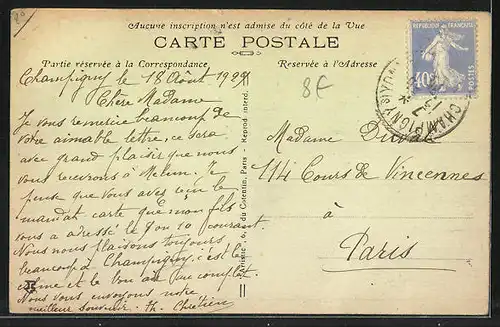 Aucune inscription n'est admise du côté de la Vue
CARTE POSTALE
Partie réservée à la Correspondance
Réservée à l'Adresse
REPUBLIQUE FRANÇAISE
40c
POSTES
CHAMPIGNY S/YONNE
8€
Champigny le 18 Août 1929
Chère Madame
Je vous remercie beaucoup de
votre aimable lettre, ce sera
avec grand plaisir que nous
vous recevrons à Melun. Je
pense que vous avez reçu le
mandat carte que mon fils
vous a adressé le 9 ou 10 courant.
Nous nous plaisons toujours
beaucoup à Champigny, c'est le
calme et le bon air au complet.
Nous vous envoyons notre
meilleur souvenir. Th. Chrétien
du Cotentin, Paris - Reprod. interd.
Madame Duval
114 Cours de Vincennes
à
Paris